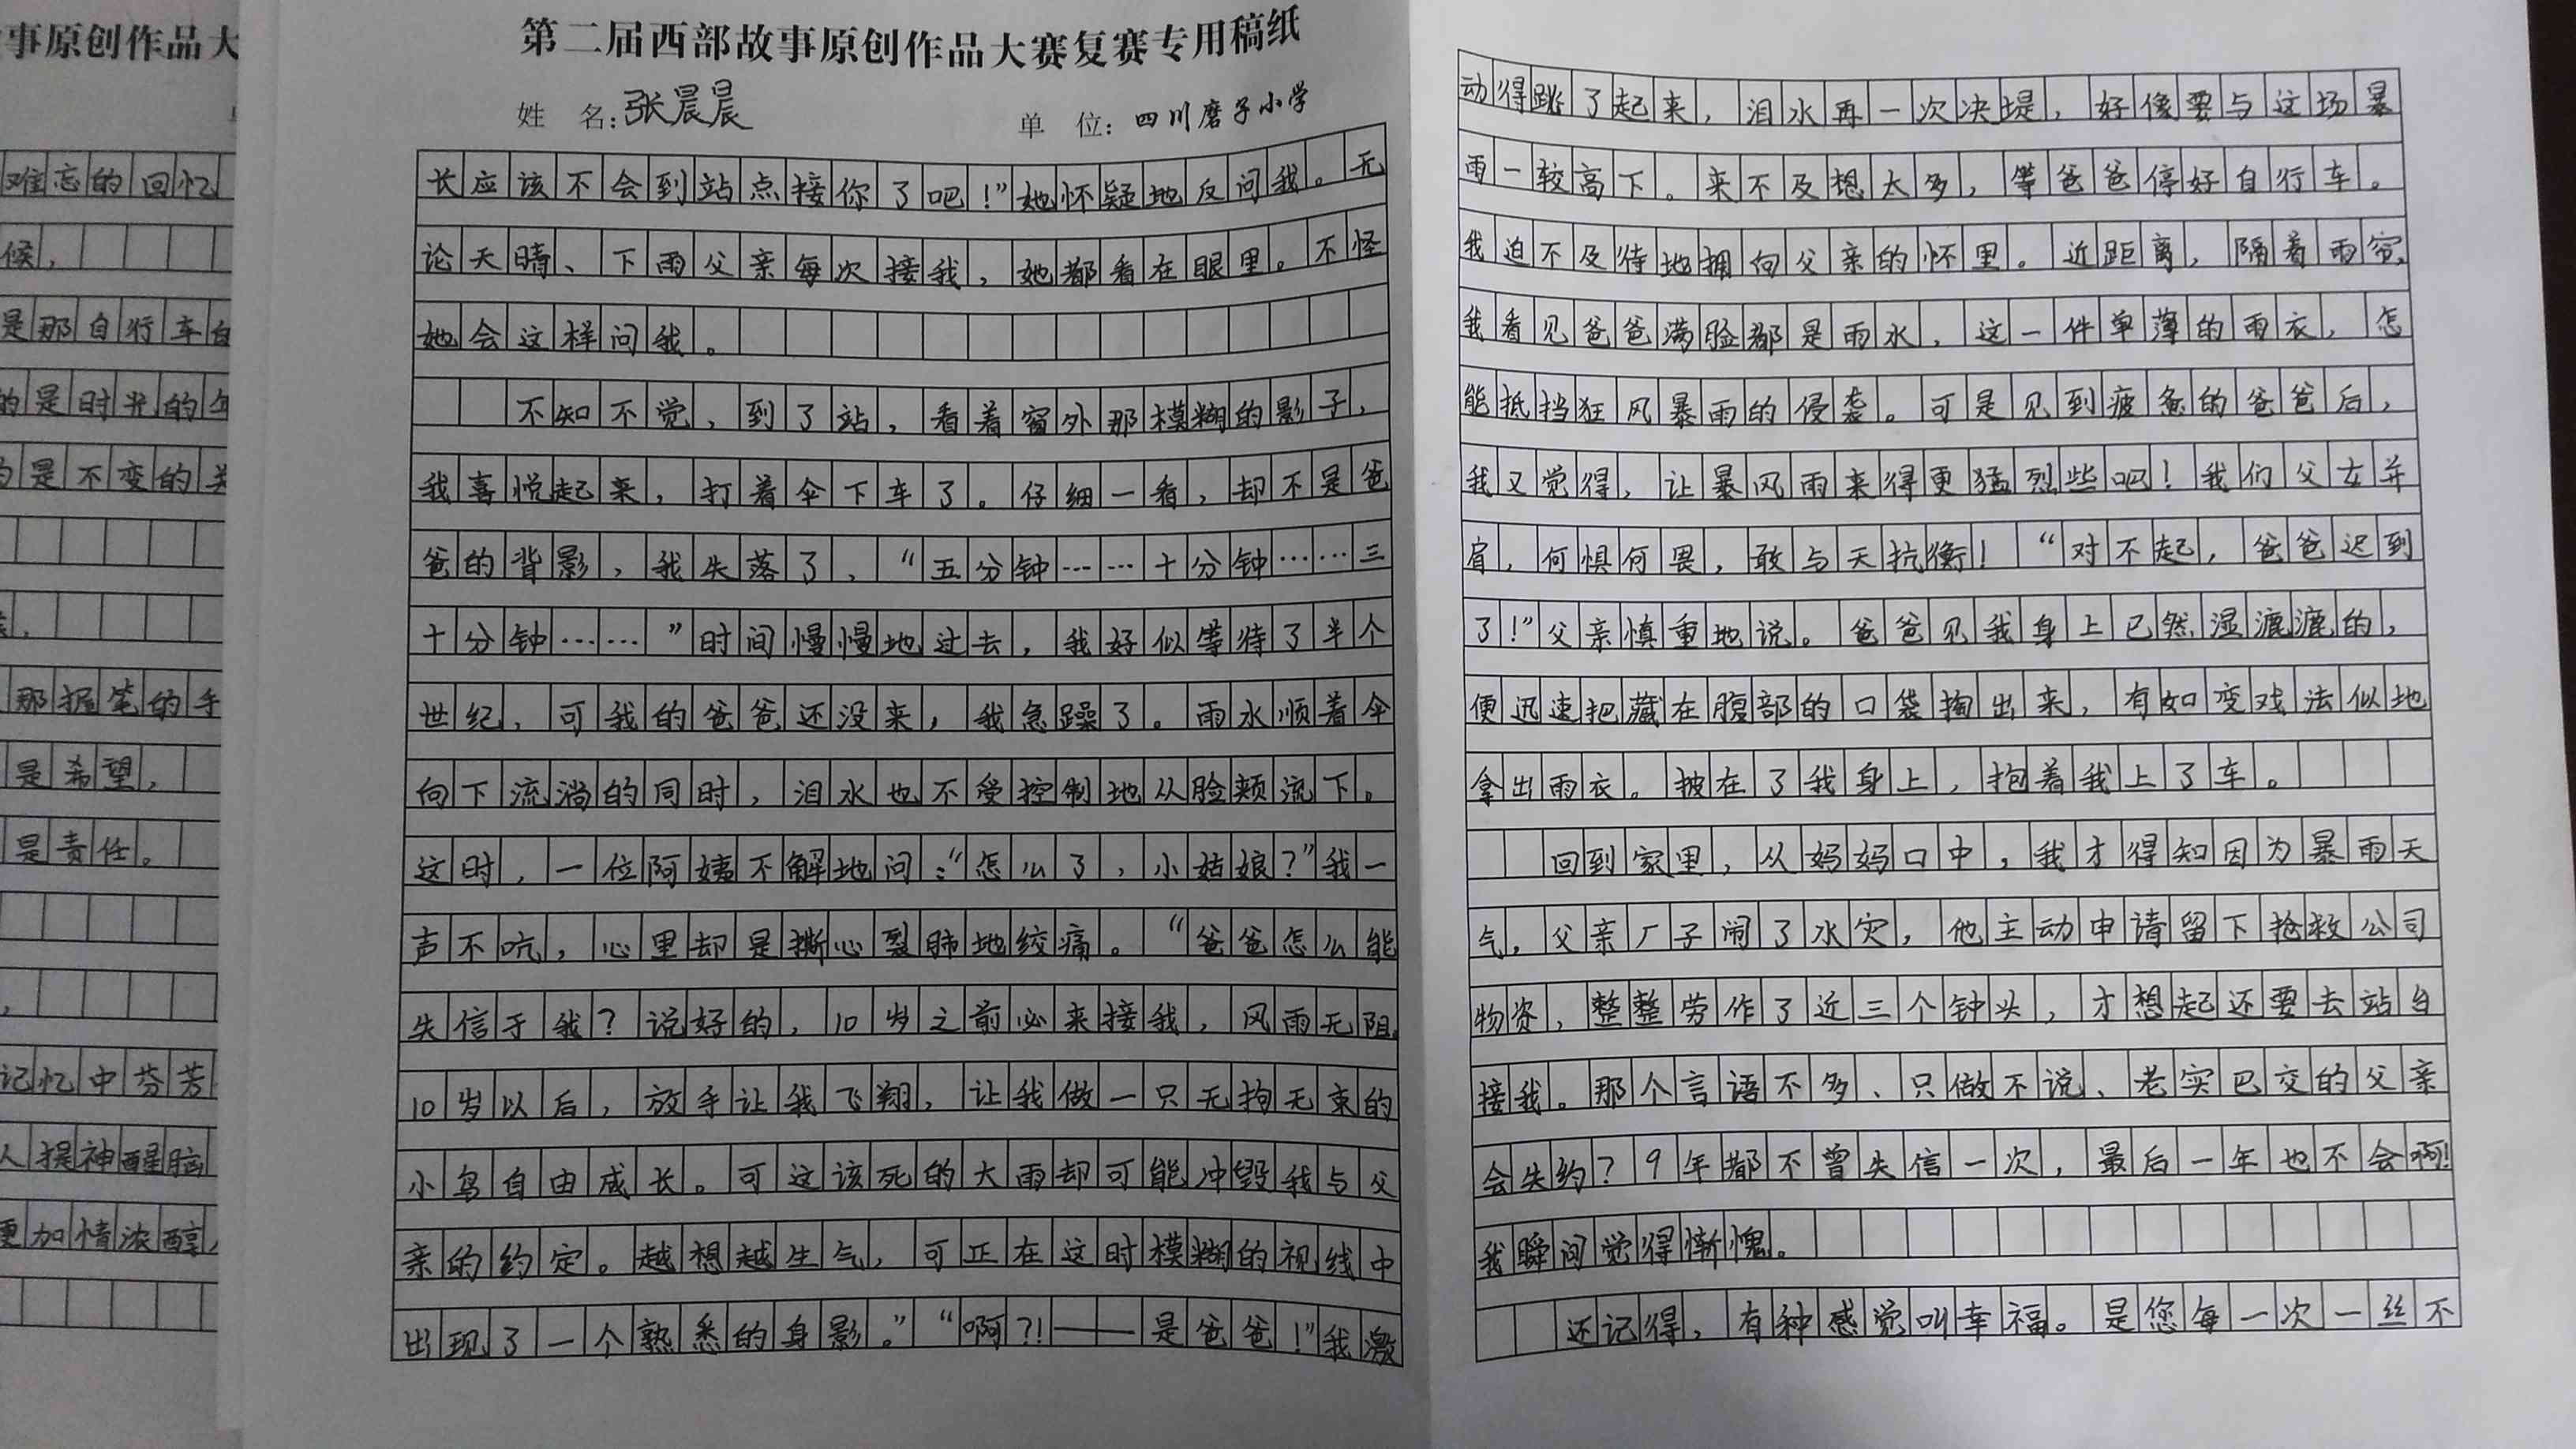 事原创作品大
难忘的回忆
候，
是那自行车
的是时光的年
是不变的关
那握笔的手
是希望，
是责任。
记忆中芬芳
人提神醒脑
更加情浓醇，
第二届西部故事原创作品大赛复赛专用稿纸
姓 名：张晨晨 单 位：四川磨子小学
长应该不会到站点接你了吧！”她怀疑地反问我。无
论天晴、下雨父亲每次接我，她都看在眼里。不怪
她会这样问我。
不知不觉，到了站，看着窗外那模糊的影子，
我喜悦起来，打着伞下车了。仔细一看，却不是爸
爸的背影，我失落了，“五分钟……十分钟……三
十分钟……”时间慢慢地过去，我好似等待了半个
世纪，可我的爸爸还没来，我急躁了。雨水顺着伞
向下流淌的同时，泪水也不受控制地从脸颊流下。
这时，一位阿姨不解地问：“怎么了，小姑娘？”我一
声不吭，心里却是撕心裂肺地绞痛。“爸爸怎么能
失信于我？说好的，10岁之前必来接我，风雨无阻。
10岁以后，放手让我飞翔，让我做一只无拘无束的
小鸟自由成长。可这该死的大雨却可能冲毁我与父
亲的约定。越想越生气，可正在这时模糊的视线中
出现了一个熟悉的身影。”“啊？！——是爸爸！”我激
动得跳了起来，泪水再一次决堤，好像要与这场暴
雨一较高下。来不及想太多，等爸爸停好自行车。
我迫不及待地拥向父亲的怀里。近距离，隔着雨帘，
我看见爸爸满脸都是雨水，这一件单薄的雨衣，怎
能抵挡狂风暴雨的侵袭。可是见到疲惫的爸爸后，
我又觉得，让暴风雨来得更猛烈些吧！我们父女并
肩，何惧何畏，敢与天抗衡！“对不起，爸爸迟到
了！”父亲慎重地说。爸爸见我身上已然湿漉漉的，
便迅速把藏在腹部的口袋掏出来，有如变戏法似地
拿出雨衣。披在了我身上，抱着我上了车。
回到家里，从妈妈口中，我才得知因为暴雨天
气，父亲厂子闹了水灾，他主动申请留下抢救公司
物资，整整劳作了近三个钟头，才想起还要去站台
接我。那个言语不多、只做不说、老实巴交的父亲
会失约？9年都不曾失信一次，最后一年也不会啊！
我瞬间觉得惭愧。
还记得，有种感觉叫幸福。是您每一次一丝不